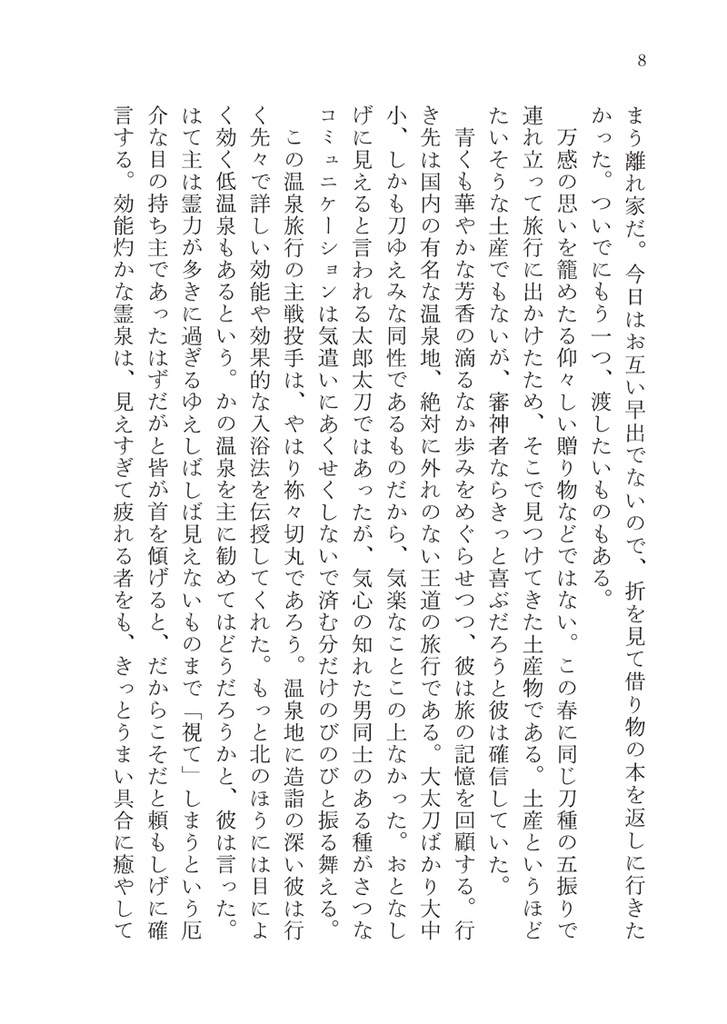 8
まう離れ家だ。今日はお互い早出でないので、折を見て借り物の本を返しに行きた
かった。ついでにもう一つ、渡したいものもある。
万感の思いを籠めたる仰々しい贈り物などではない。この春に同じ刀種の五振りで
連れ立って旅行に出かけたため、そこで見つけてきた土産物である。土産というほど
たいそうな土産でもないが、審神者ならきっと喜ぶだろうと彼は確信していた。
青くも華やかな芳香の滴るなか歩みをめぐらせつつ、彼は旅の記憶を回顧する。行
き先は国内の有名な温泉地、絶対に外れのない王道の旅行である。大太刀ばかり大中
小、しかも刀ゆえみな同性であるものだから、気楽なことこの上なかった。おとなし
げに見えると言われる太郎太刀ではあったが、気心の知れた男同士のある種がさつな
コミュニケーションは気遣いにあくせくしないで済む分だけのびのびと振る舞える。
この温泉旅行の主戦投手は、やはり祢々切丸であろう。温泉地に造詣の深い彼は行
く先々で詳しい効能や効果的な入浴法を伝授してくれた。もっと北のほうには目によ
く効く低温泉もあるという。かの温泉を主に勧めてはどうだろうかと、彼は言った。
はて主は霊力が多きに過ぎるゆえしばしば見えないものまで「視て」しまうという厄
介な目の持ち主であったはずだがと皆が首を傾げると、だからこそだと頼もしげに確
言する。効能灼かな霊泉は、見えすぎて疲れる者をも、きっとうまい具合に癒やして